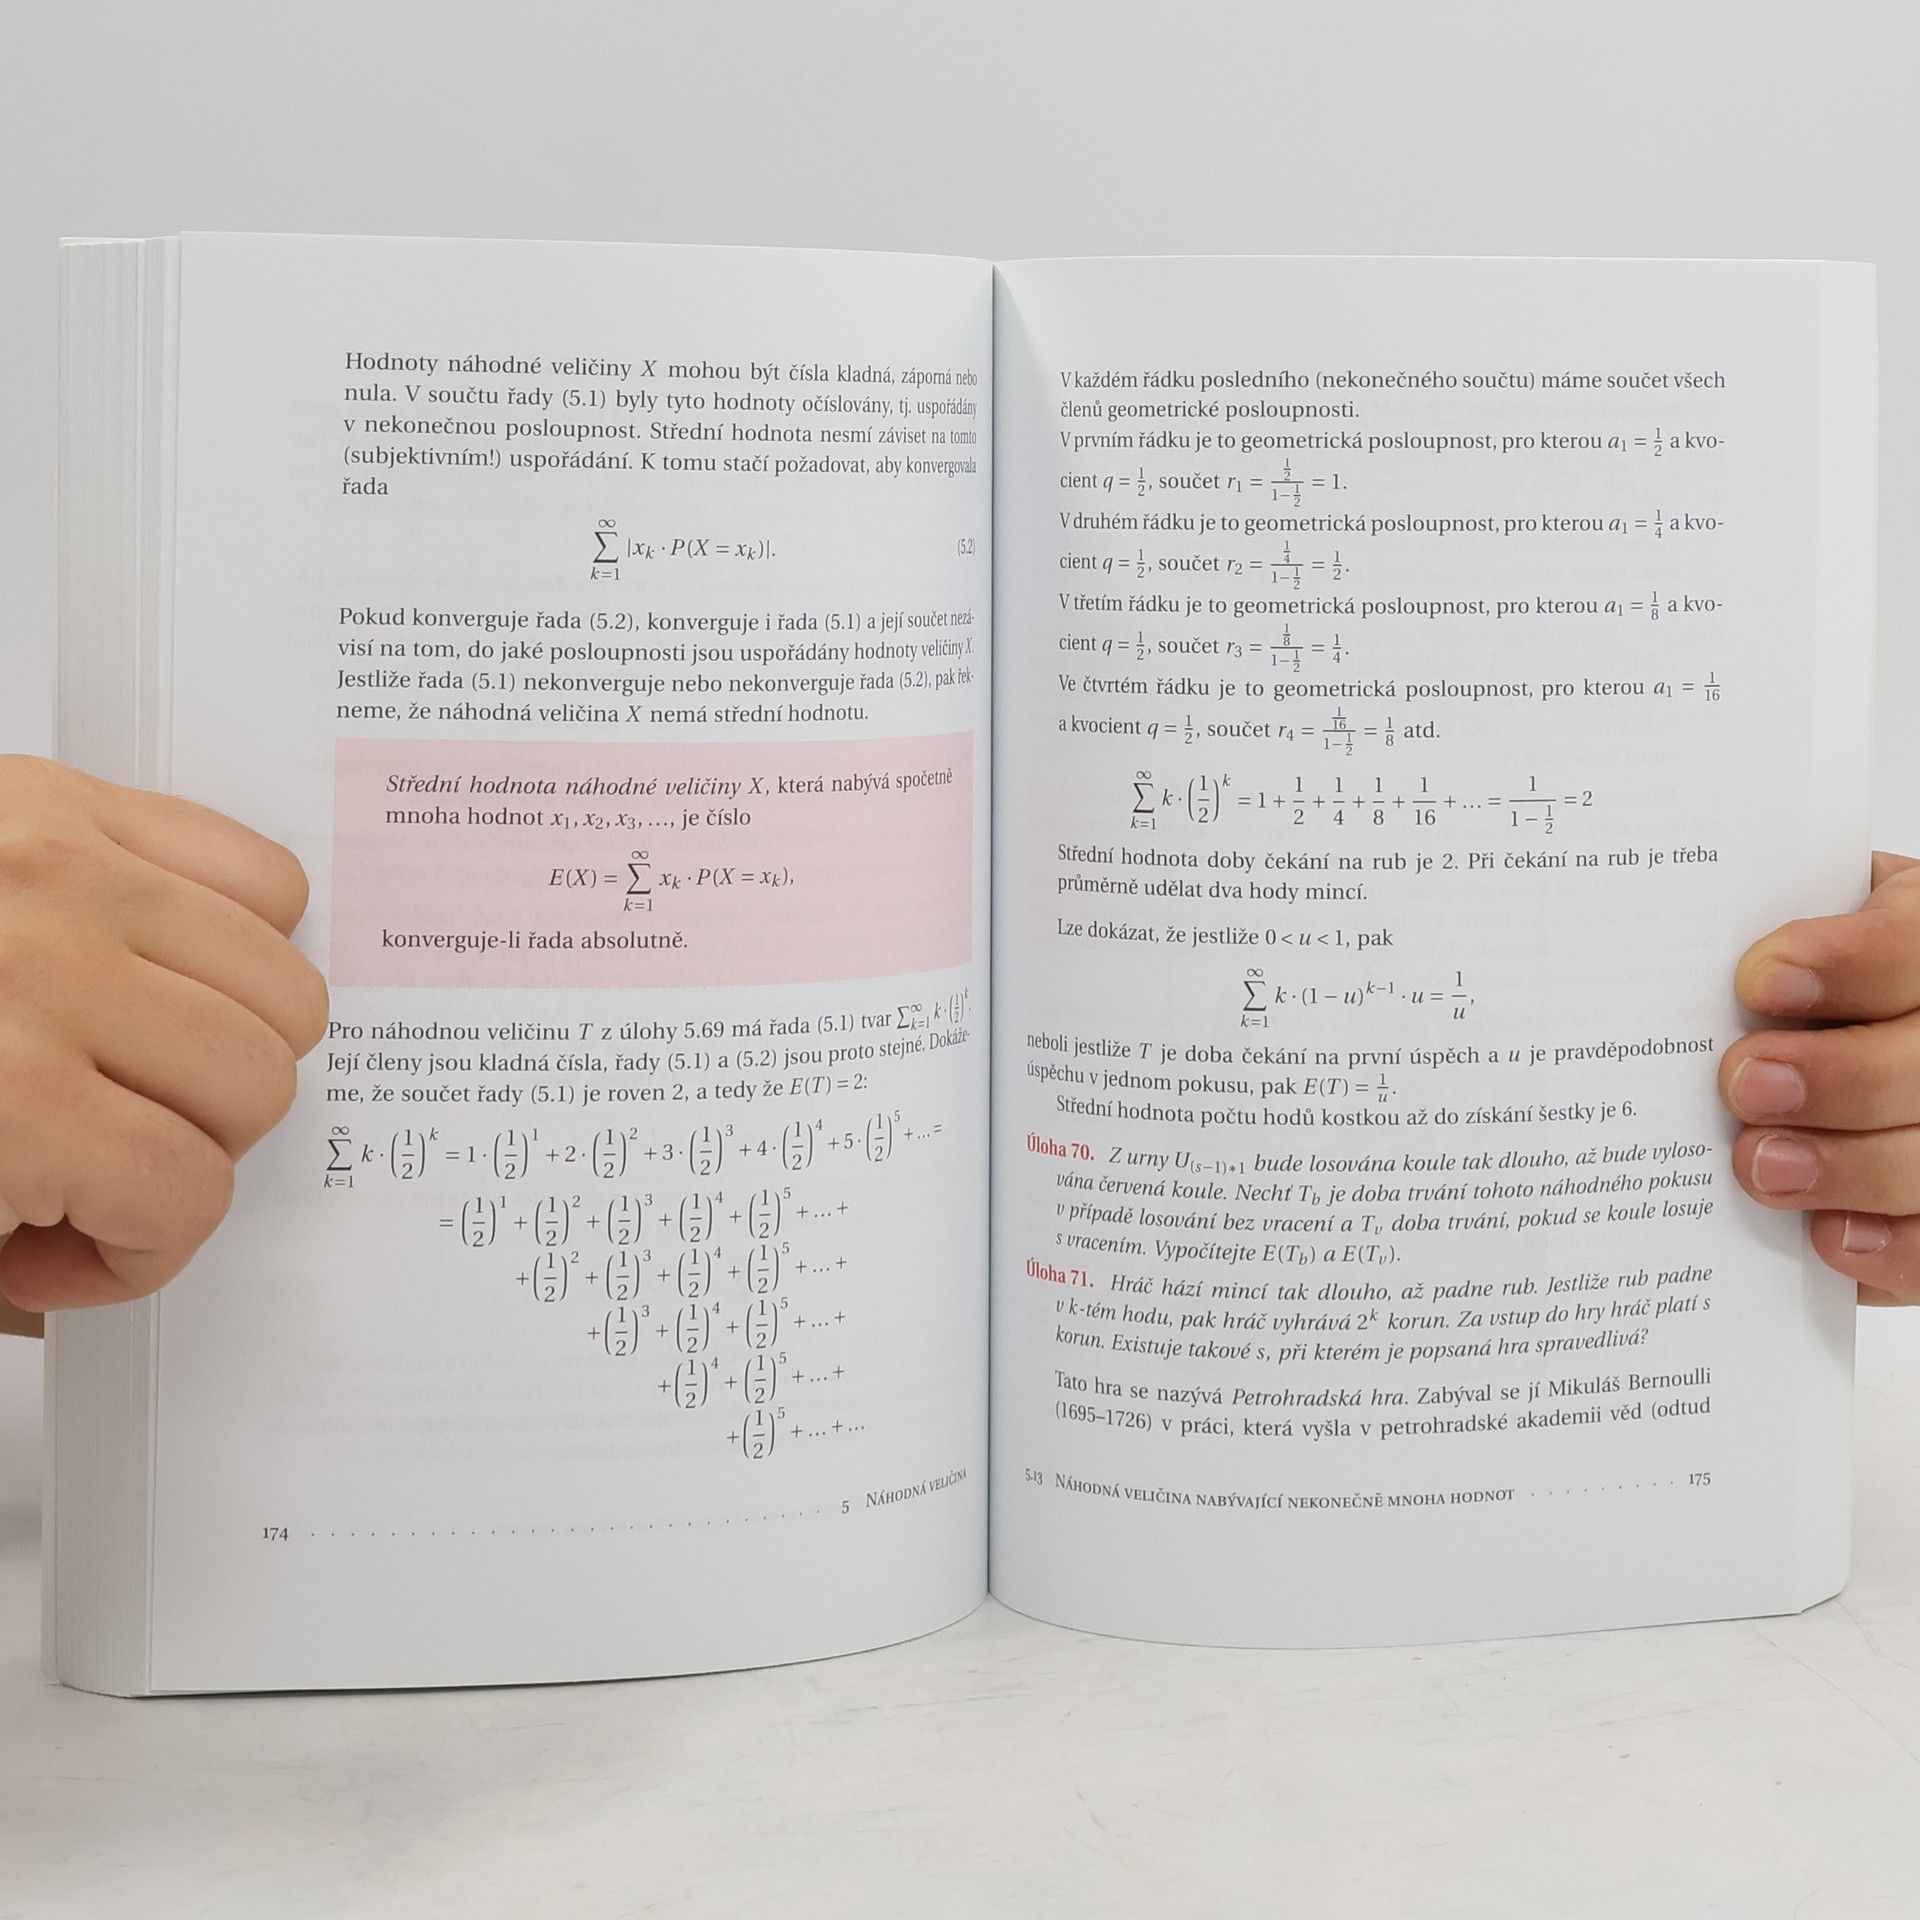 Hodnoty náhodné veličiny X mohou být čísla kladná, záporná nebo
nula. V součtu řady (5.1) byly tyto hodnoty očíslovány, tj. uspořádány
v nekonečnou posloupnost. Střední hodnota nesmí záviset na tomto
(subjektivním!) uspořádání. K tomu stačí požadovat, aby konvergovala
řada
∑_{k=1}^{∞} |x_k · P(X = x_k)|. (5.2)
Pokud konverguje řada (5.2), konverguje i řada (5.1) a její součet nezá-
visí na tom, do jaké posloupnosti jsou uspořádány hodnoty veličiny X.
Jestliže řada (5.1) nekonverguje nebo nekonverguje řada (5.2), pak řek-
neme, že náhodná veličina X nemá střední hodnotu.
Střední hodnota náhodné veličiny X, která nabývá spočetně
mnoha hodnot x₁, x₂, x₃, ..., je číslo
E(X) = ∑_{k=1}^{∞} x_k · P(X = x_k),
konverguje-li řada absolutně.
Pro náhodnou veličinu T z úlohy 5.69 má řada (5.1) tvar ∑_{k=1}^{∞} k·(1/2)^k.
Její členy jsou kladná čísla, řady (5.1) a (5.2) jsou proto stejné. Dokáže-
me, že součet řady (5.1) je roven 2, a tedy že E(T) = 2:
∑_{k=1}^{∞} k·(1/2)^k = 1·(1/2)^1 + 2·(1/2)^2 + 3·(1/2)^3 + 4·(1/2)^4 + 5·(1/2)^5 + ... =
= (1/2)^1 + (1/2)^2 + (1/2)^3 + (1/2)^4 + (1/2)^5 + ... +
+ (1/2)^2 + (1/2)^3 + (1/2)^4 + (1/2)^5 + ... +
+ (1/2)^3 + (1/2)^4 + (1/2)^5 + ... +
+ (1/2)^4 + (1/2)^5 + ... +
+ (1/2)^5 + ... + ...
174 . . . . . . . . . . . . . . . . . . . . . . . . . . 5 NÁHODNÁ VELIČINA
V každém řádku posledního (nekonečného součtu) máme součet všech
členů geometrické posloupnosti.
V prvním řádku je to geometrická posloupnost, pro kterou a₁ = 1/2 a kvo-
cient q = 1/2, součet r₁ = (1/2)/(1−1/2) = 1.
V druhém řádku je to geometrická posloupnost, pro kterou a₁ = 1/4 a kvo-
cient q = 1/2, součet r₂ = (1/4)/(1−1/2) = 1/2.
V třetím řádku je to geometrická posloupnost, pro kterou a₁ = 1/8 a kvo-
cient q = 1/2, součet r₃ = (1/8)/(1−1/2) = 1/4.
Ve čtvrtém řádku je to geometrická posloupnost, pro kterou a₁ = 1/16
a kvocient q = 1/2, součet r₄ = (1/16)/(1−1/2) = 1/8 atd.
∑_{k=1}^{∞} k·(1/2)^k = 1 + 1/2 + 1/4 + 1/8 + 1/16 + ... = 1/(1 − 1/2) = 2
Střední hodnota doby čekání na rub je 2. Při čekání na rub je třeba
průměrně udělat dva hody mincí.
Lze dokázat, že jestliže 0 < u < 1, pak
∑_{k=1}^{∞} k·(1 − u)^{k−1} · u = 1/u,
neboli jestliže T je doba čekání na první úspěch a u je pravděpodobnost
úspěchu v jednom pokusu, pak E(T) = 1/u.
Střední hodnota počtu hodů kostkou až do získání šestky je 6.
Úloha 70. Z urny U_{(s−1)∗1} bude losována koule tak dlouho, až bude vyloso-
vána červená koule. Nechť T_b je doba trvání tohoto náhodného pokusu
v případě losování bez vracení a T_v doba trvání, pokud se koule losuje
s vracením. Vypočítejte E(T_b) a E(T_v).
Úloha 71. Hráč hází mincí tak dlouho, až padne rub. Jestliže rub padne
v k-tém hodu, pak hráč vyhrává 2^k korun. Za vstup do hry hráč platí s
korun. Existuje takové s, při kterém je popsaná hra spravedlivá?
Tato hra se nazývá Petrohradská hra. Zabýval se jí Mikuláš Bernoulli
(1695–1726) v práci, která vyšla v petrohradské akademii věd (odtud
5.13 NÁHODNÁ VELIČINA NABÝVAJÍCÍ NEKONEČNĚ MNOHA HODNOT . . . . . . . . . 175